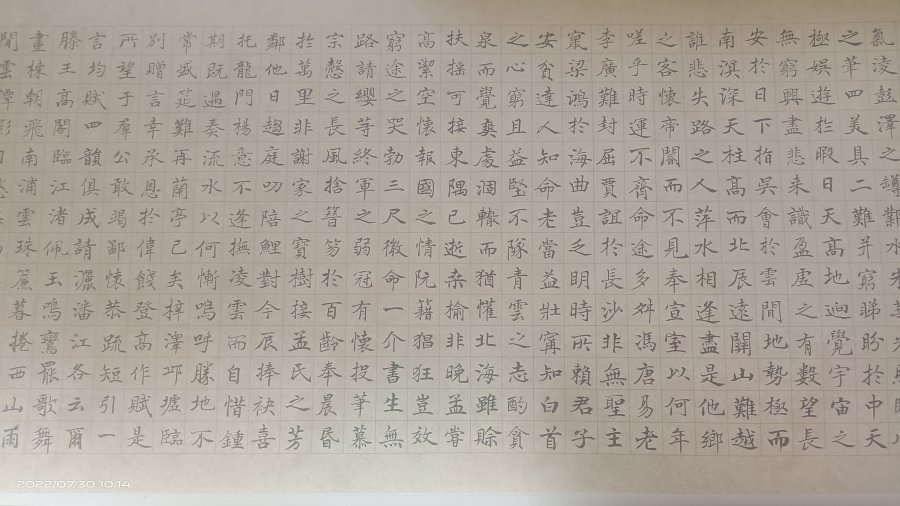 氣凌彭澤之罇鄴水朱華光
之華四美具二難并窮睇盼於中天
極娛遊於暇日天高地迥覺宇宙之
無窮興盡悲來識盈虛之有數望長
安於日下指吳會於雲間地勢極而
南溟深天柱高而北辰遠關山難越
誰悲失路之人萍水相逢盡是他鄉
之客懷帝閽而不見奉宣室以何年
嗟乎時運不齊命途多舛馮唐易老
李廣難封屈賈誼於長沙非無聖主
竄梁鴻於海曲豈乏明時所賴君子
安貧達人知命老當益壯寧知白首
之心窮且益堅不隊青雲之志酌貪
泉而覺爽處涸轍而猶懽北海雖賒
扶搖可接東隅已逝桑榆非晚孟嘗
高潔空懷報國之情阮籍猖狂豈效
窮途之哭勃三尺微命一介書生無
路請纓等終軍之弱冠有懷投筆慕
宗愨之長風捨簪笏於百齡奉晨昏
於萬里非謝家之寶樹接孟氏之芳
鄰他日趨庭叨陪鯉對今辰捧袂喜
托龍門楊意不逢撫凌雲而自惜鍾
期既遇奏流水以何慚嗚呼勝地不
常盛筵難再蘭亭已矣梓澤邱墟臨
別贈言幸承恩於偉餞登高作賦是
所望于羣公敢竭鄙懷恭疏短引一
言均賦四韻俱成請灑潘江各云爾
滕王高閣臨江渚佩玉鳴鸞罷歌舞
畫棟朝飛南浦雲珠簾暮捲西山雨
閒雲潭影日悠
2022/07/30 10:14